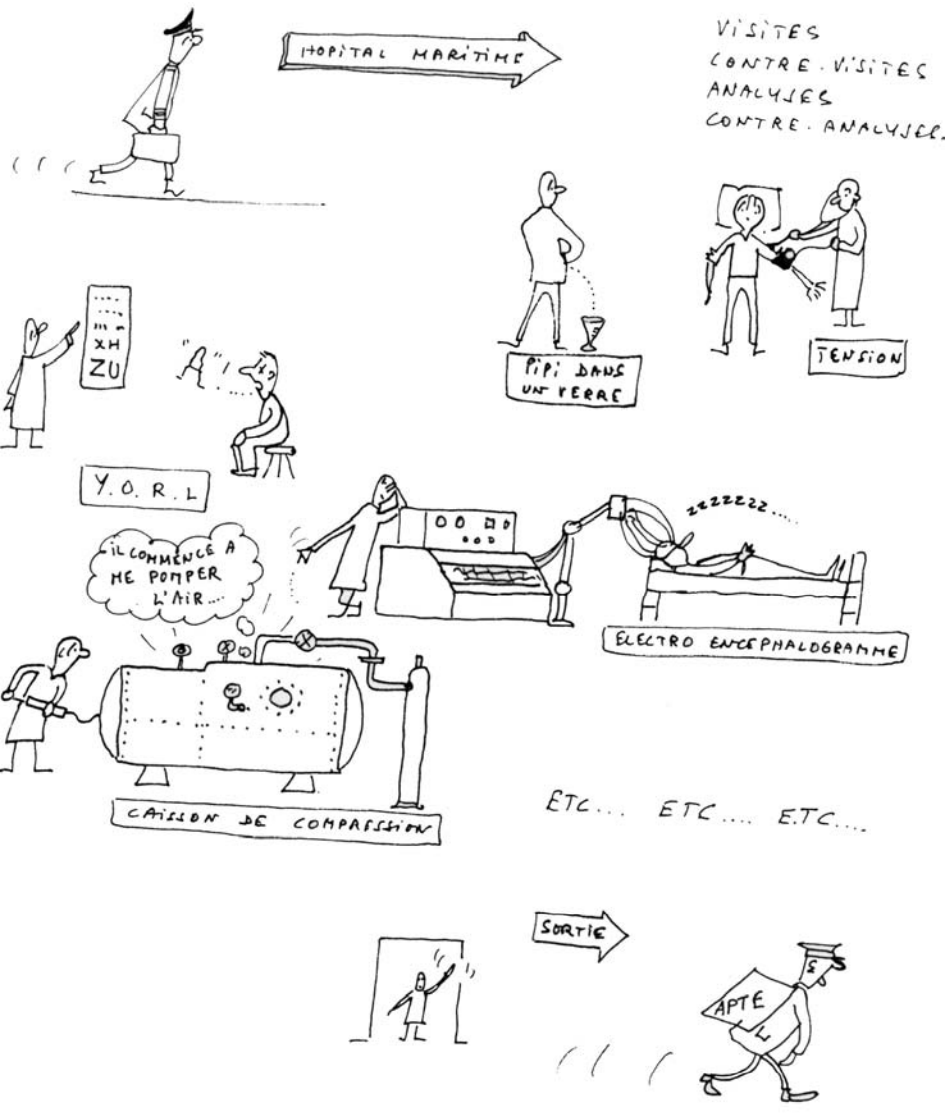 HOPITAL MARITIME
VISITES
CONTRE.VISITES
ANALYSES
CONTRE.ANALYSES.
XH
ZU
PIPI DANS
UN VERRE
TENSION
Y.O.R.L
IL COMMENCE A
ME POMPER
L'AIR...
ZZZZZZZ....
ELECTRO ENCEPHALOGRAMME
CAISSON DE COMPRESSION
ETC... ETC.... E.TC....
SORTIE
APTE